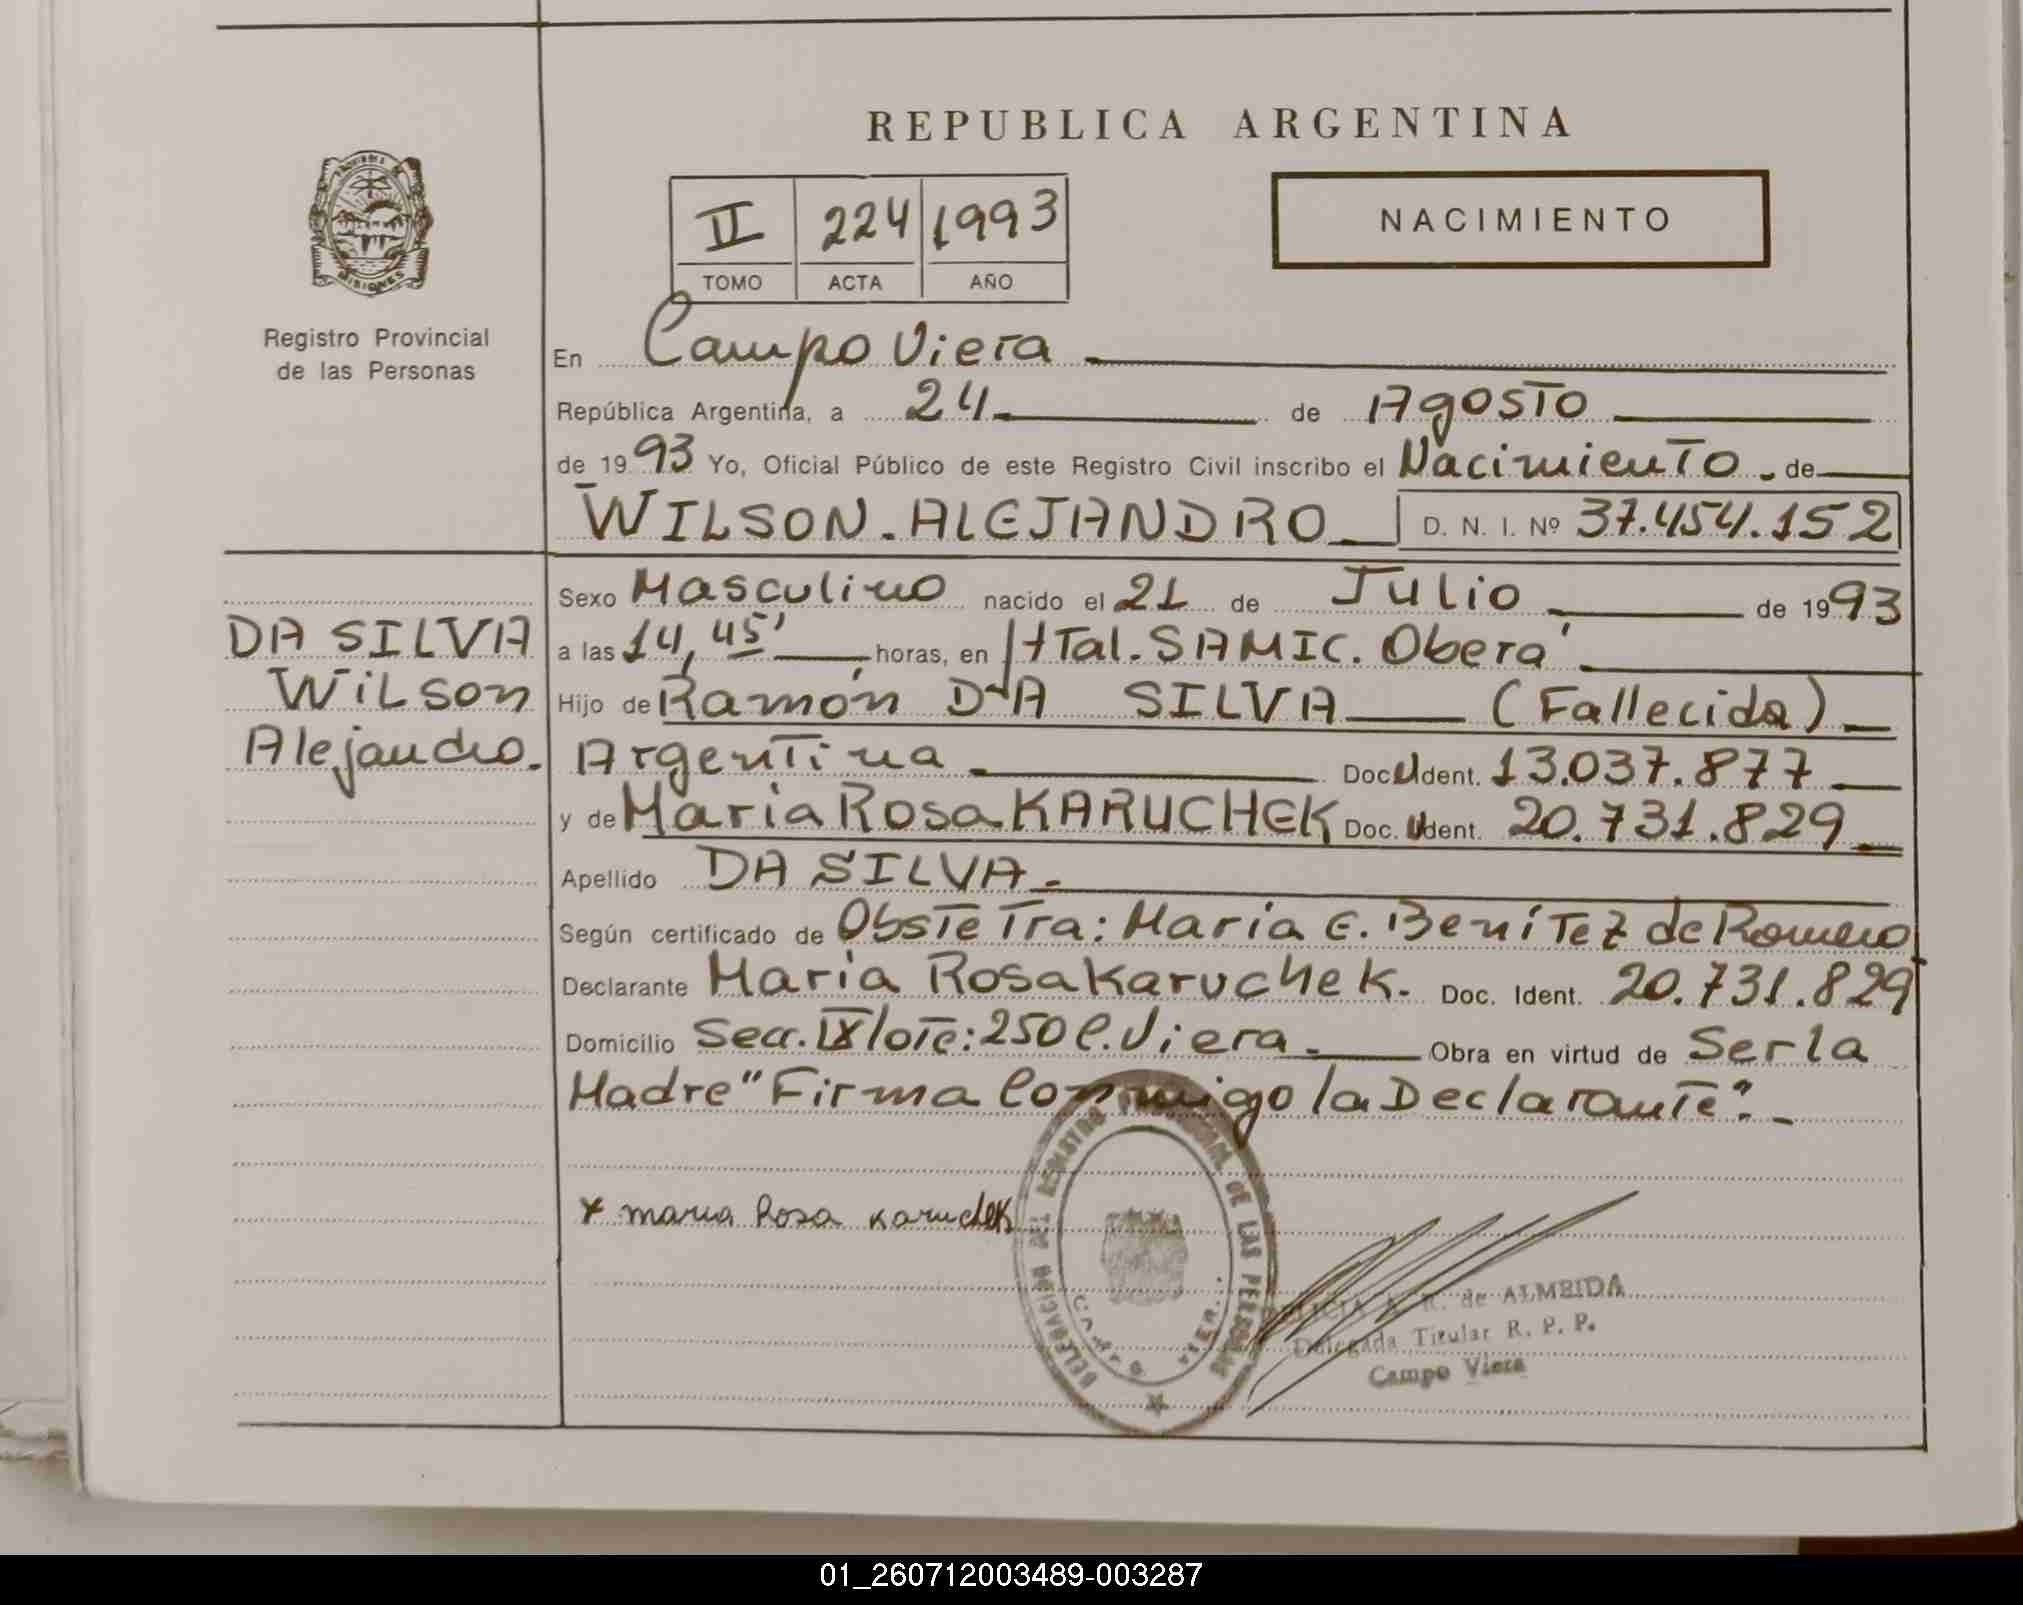 REPUBLICA ARGENTINA
PROVINCIA DE
MISIONES
Registro Provincial
de las Personas
II 224 1993
TOMO ACTA AÑO
NACIMIENTO
En Campo Viera
República Argentina, a 24 de Agosto
de 1993 Yo, Oficial Público de este Registro Civil inscribo el Nacimiento de
WILSON.ALEJANDRO D. N. I. Nº 37.454.152
DA SILVA
Wilson
Alejandro.
Sexo Masculino nacido el 21 de Julio de 1993
a las 14,45' horas, en HTal.SAMIC. Oberá
Hijo de Ramón DA SILVA (Fallecido)
Argentina Doc. U Ident. 13.037.877
y de Maria Rosa KARUCHEK Doc. U Ident. 20.731.829
Apellido DA SILVA.
Según certificado de ObsteTra: María E. BeníTez de Romero
Declarante María Rosa Karuchek. Doc. Ident. 20.731.829
Domicilio Secc. IX lote: 250 C. Viera. Obra en virtud de Ser la
Madre "Firma Conmigo la Declarante".
x maria Rosa Karuchek
DELEGACION DEL REGISTRO PROVINCIAL DE LAS PERSONAS
CAMPO VIERA
A. R. de ALMEIDA
Delegada Titular R. P. P.
Campo Viera
01_260712003489-003287